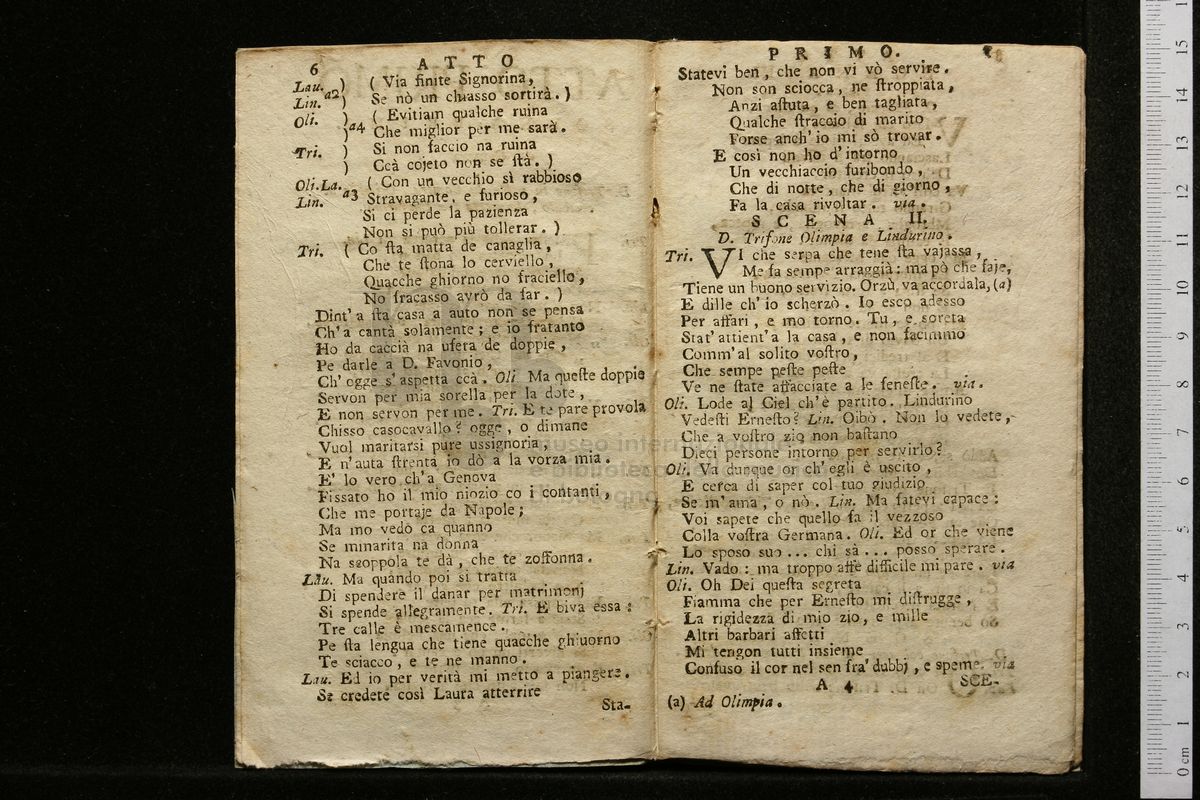 6 ATTO
Lau. ) ( Via finite Signorina,
Lin. a2 ) Se nò un chiasso sortirà. )
Oli. ) ( Evitiam qualche ruina
)a4 Che miglior per me sarà.
Tri. ) Si non faccio na ruina
) Ccà cojeto non se ſtà. )
Oli.La. ( Con un vecchio sì rabbioso
Lin. a3 Stravagante, e furioso,
Si ci perde la pazienza
Non si può più tollerar. )
Tri. ( Co ſta matta de canaglia,
Che te ſtona lo cerviello,
Quacche ghiorno no fraciello,
No fracasso avrò da far. )
Dint' a ſta casa a auto non se pensa
Ch' a cantà solamente; e io fratanto
Ho da caccià na ufera de doppie,
Pe darle a D. Favonio,
Ch' ogge s' aspetta ccà. Oli Ma queſte doppie
Servon per mia sorella per la dote,
E non servon per me. Tri. E te pare provola
Chisso casocavallo? ogge, o dimane
Vuol maritarsi pure ussignoria,
E n' auta ſtrenta io dò a la vorza mia.
E' lo vero ch' a Genova
Fissato ho il mio niozio co i contanti,
Che me portaje da Napole;
Ma mo vedò ca quanno
Se mmarita na donna
Na scoppola te dà, che te zoffonna.
Lau. Ma quando poi si tratta
Di spendere il danar per matrimonj
Si spende allegramente. Tri. E biva essa:
Tre calle è mescamence.
Pe ſta lengua che tiene quacche ghiuorno
Te sciacco, e te ne manno.
Lau. Ed io per verità mi metto a piangere.
Se credete così Laura atterrire
Sta-
PRIMO.
Statevi ben, che non vi vò servire.
Non son sciocca, ne ſtroppiata,
Anzi aſtuta, e ben tagliata,
Qualche ſtraccio di marito
Forse anch' io mi sò trovar.
E così non ho d' intorno
Un vecchiaccio furibondo,
Che di notte, che di giorno,
Fa la casa rivoltar. via.
SCENA II.
D. Trifone Olimpia e Lindurino.
Tri. VI che serpa che tene ſta vajassa,
Me fa sempe arraggià: ma pò che faje,
Tiene un buono servizio. Orzù, va accordala, (a)
E dille ch' io scherzò. Io esco adesso
Per affari, e mo torno. Tu, e soreta
Stat' attient' a la casa, e non facimmo
Comm' al solito voſtro,
Che sempe peſte peſte
Ve ne ſtate affacciate a le feneſte. via.
Oli. Lode al Ciel ch' è partito. Lindurino
Vedeſti Erneſto? Lin. Oibò. Non lo vedete,
Che a voſtro zio non baſtano
Dieci persone intorno per servirlo?
Oli. Va dunque or ch' egli è uscito,
E cerca di saper col tuo giudizio
Se m' ama, o nò. Lin. Ma fatevi capace:
Voi sapete che quello fa il vezzoso
Colla voſtra Germana. Oli. Ed or che viene
Lo sposo suo... chi sà... posso sperare.
Lin. Vado: ma troppo affè difficile mi pare. via
Oli. Oh Dei queſta segreta
Fiamma che per Erneſto mi diſtrugge,
La rigidezza di mio zio, e mille
Altri barbari affetti
Mi tengon tutti insieme
Confuso il cor nel sen fra' dubbj, e speme. via
A 4 SCE-
(a) Ad Olimpia.